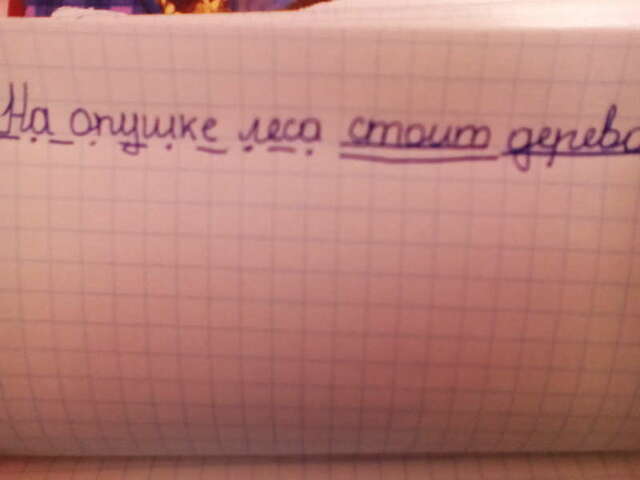 На опушке леса стоит дерево